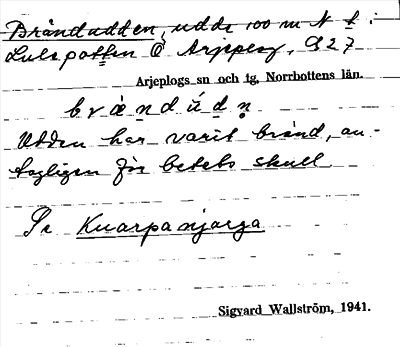 Brändudden, udde 100 m N t. i
Lulepotten Ö Arjeplog, 927
Arjeplogs sn och tg, Norrbottens län.
brä̀ndúdn̥
Udden har varit bränd, an-
tagligen för betets skull
Se Kuarpanjarga
Sigvard Wallström, 1941.